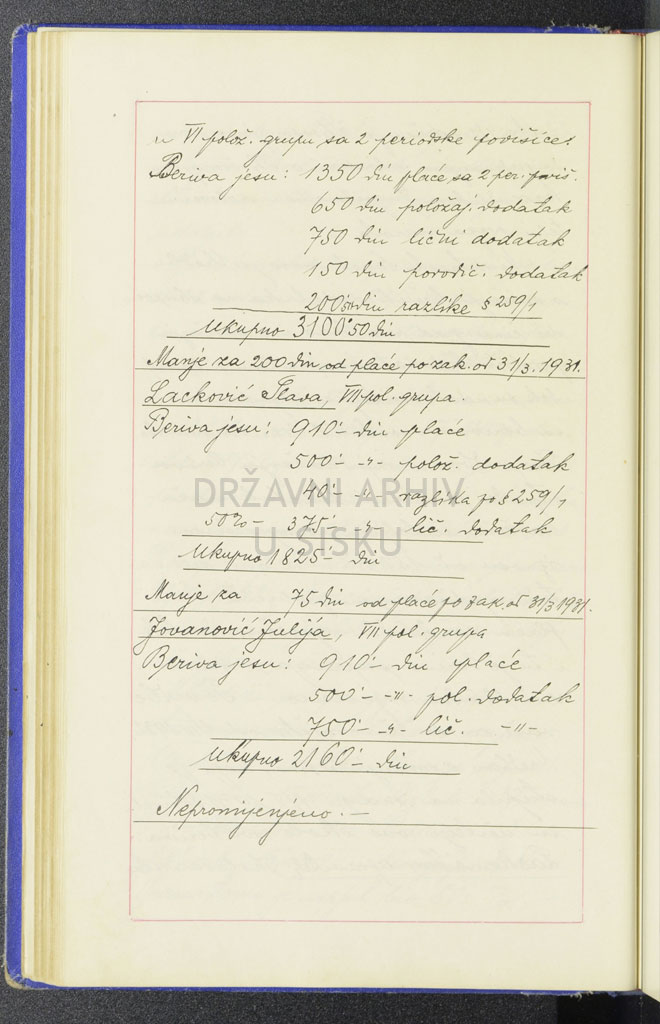 u VI polož. grupu sa 2 periodske povišice.
Beriva jesu: 1350 din plaće sa 2 per. poviš.
650 din položaj. dodatak
750 din lični dodatak
150 din porodič. dodatak
200'50 din razlike § 259/1
Ukupno 3100'50 din
Manje za 200 din od plaće po zak. od 31/3. 1931.
Lacković Slava, VII pol. grupa.
Beriva jesu: 910'- din plaće
500'- -"- polož. dodatak
40'- -"- razlika po § 259/1
50%- 375'- -"- lič. dodatak
Ukupno 1825'- din
Manje za 75 din od plaće po zak. od 31/3 1931.
Jovanović Julija, VII pol. grupa
Beriva jesu: 910'- din plaće
500'- -"- pol. dodatak
750'- -"- lič. -"-
Ukupno 2160'- din
Nepromijenjeno. -
DRŽAVNI ARHIV
U SISKU